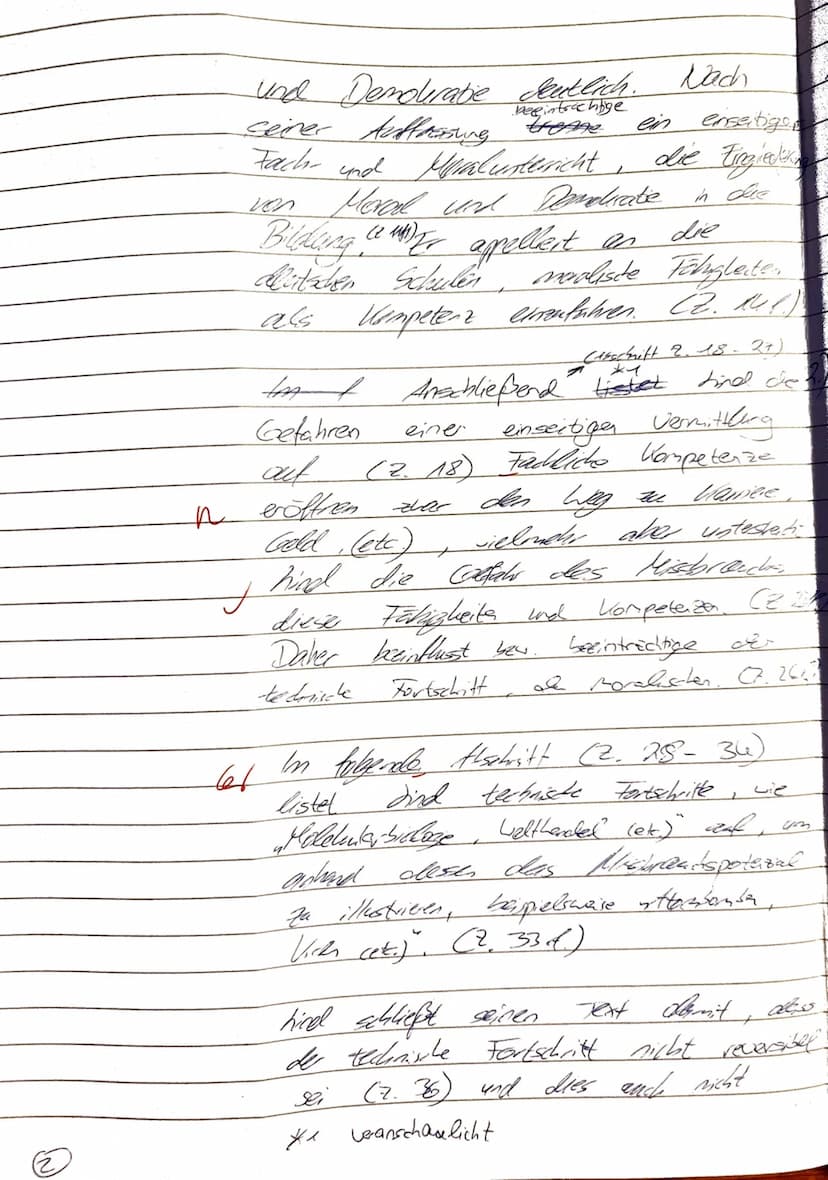 und Demokratie deutlich. Nach
beeinträchtige
seiner Auffassung ein einseitiger
Fach- und Moralunterricht, die
von Moral und Demokratie in die
Bildung. Er appelliert an die
deutschen Schulen, moralische Fähigkeiten
als Kompetenz einzuführen. (Z. 14 f.)
(Abschnitt Z. 18 - 27)
*1
Anschließend Lind die
Gefahren einer einseitigen Vermittlung
auf (Z. 18) Fachliche Kompetenze
n eröffnen zwar den Weg zu Karriere,
Geld, (etc.), vielmehr aber
Lind die Gefahr des Missbrauchs
dieser Fähigkeiten und Kompetenzen. (Z.
Daher beeinflusst bzw. beeinträchtige der
technische Fortschritt, moralischen. (Z. 26
Im folgenden Abschnitt (Z. 28 - 34)
listet Lind technische Fortschritte, wie
„Molekularbiologie, Welthandel (etc.)“ auf, um
anhand dessen das Missbrauchspotenzial
zu illustrieren, beispielsweise „Atombombe,
(etc.)“. (Z. 33 f.)
Lind schließt seinen Text damit, dass
der technische Fortschritt nicht reversibel
sei (Z. 36) und dies auch nicht
*1 veranschaulicht
2